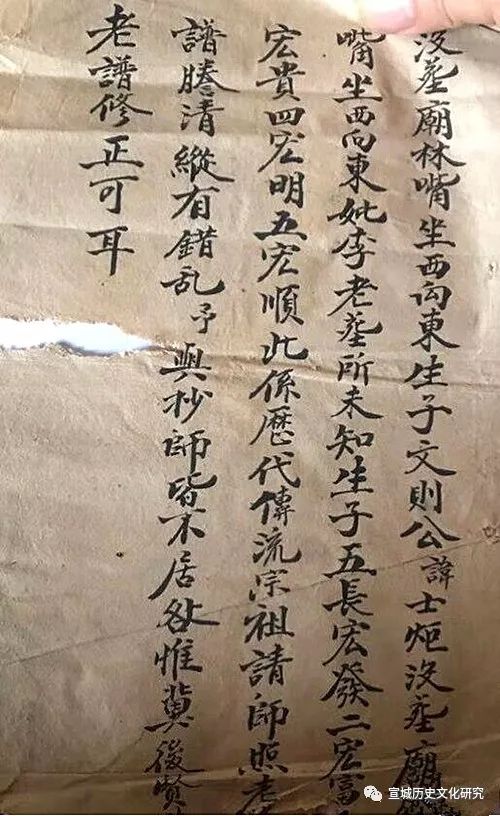 没葬廟林嘴坐西向東生子文則公諱士炬没葬廟
嘴坐西向東妣李老葬所未知生子五長宏發二宏富
宏貴四宏明五宏順此係歷代傳流宗祖請師照老
譜謄清縱有錯乱予與抄師皆不居咎惟冀後賢
老譜修正可耳
宣城历史文化研究